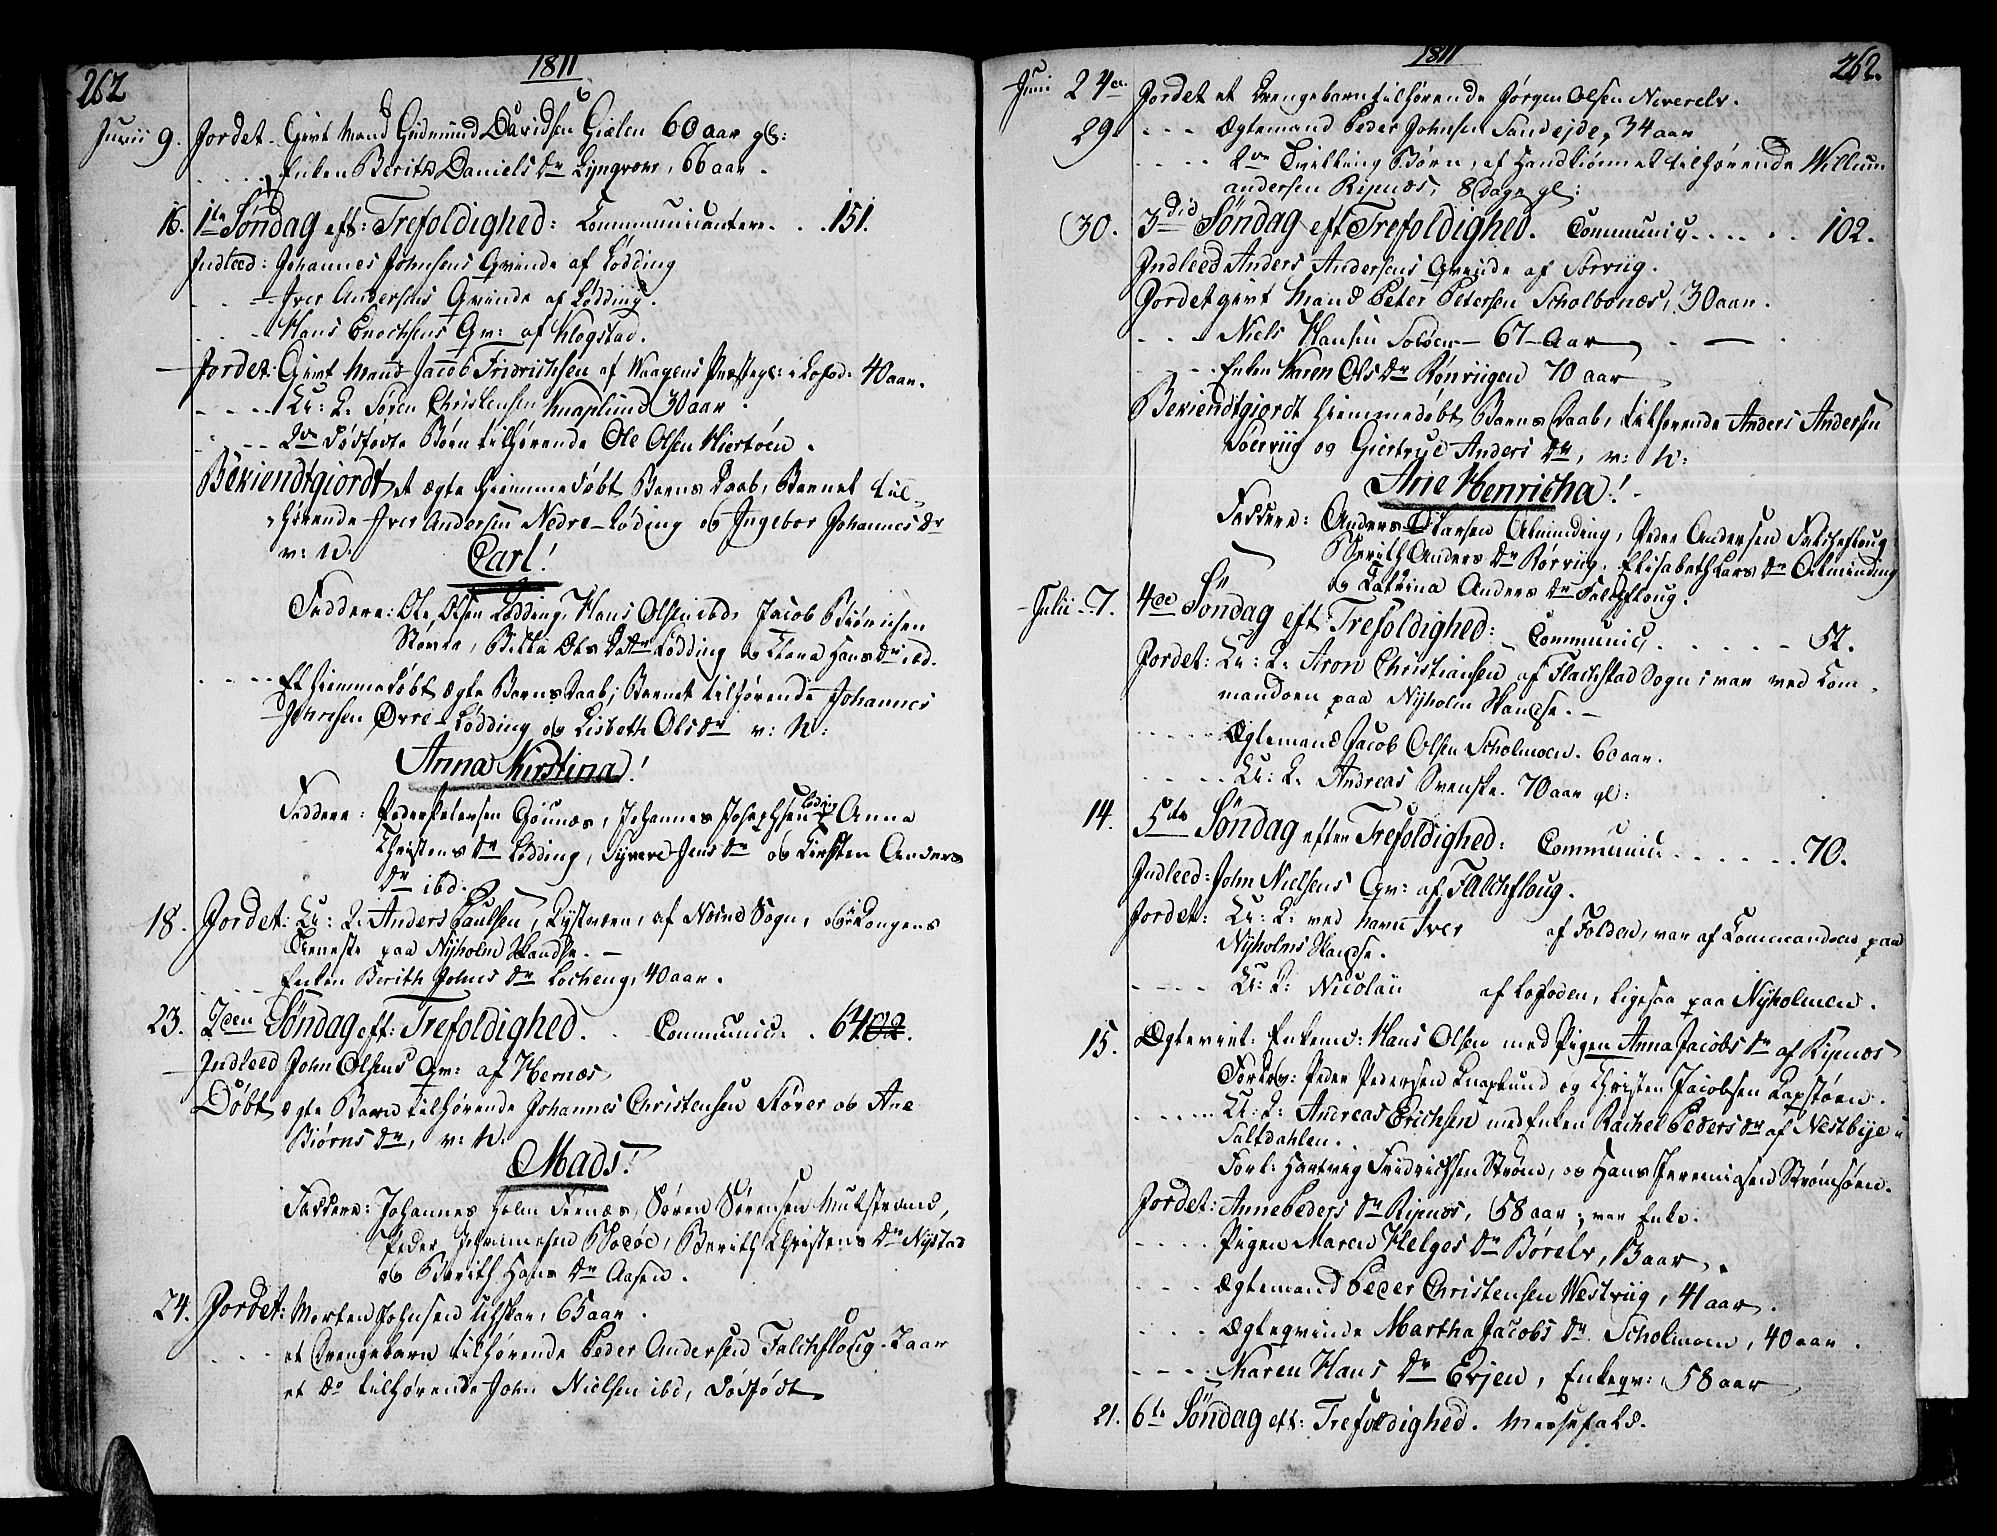 262
1811
Junii 9. Jordet. Givt Mand Gudmund Davidsen Gielen 60 aar gl:
Enken Berith Daniels Dr Lyngvær, 66 aar.
16. 1te Søndag eft: Trefoldighed: Communicantere. . . 151.
Indleed: Johannes Johnsens Qvinde af Lødding
Iver Andersens Qvinde af Lødding.
Hans Enochsens Qv: af Klogstad.
Jordet: Givt Mand Jacob Fridrichsen af Waagens Præstegl: i Lofod: 40 aar.
U: K. Søren Christensen Knaplund 30 aar.
2de dødfødte Børn tilhørende Ole Olsen Hiertøen.
Bekiendtgiordt et ægte hiemmedøbt Barns Daab, Barnet til-
hørende Iver Andersen Nedre-Løding og Ingebor Johannes Dr
v: N:
Carl!
Faddere: Ole Olsen Lødding, Hans Olsen ibd, Jacob Biørnsen
Støver, Ols Datter Lødding og Hans Dr ibd.
Et hiemmedøbt ægte Barns Daab; Barnet tilhørende Johannes
Johnsen Øvre-Lødding og Lisbeth Ols Dr v: N:
Anna Kirstina!
Faddere: Peder Petersen Godnæs, Johannes Josephsen Løding Anna
Christens Dr Lødding, Jens Dr og Kirsten Anders
Dr ibd.
18. Jordet: U: K. Anders Paulsen, af Næsne Sogn, i Kongens
Tieneste paa Nyholms Skandse. -
Enken Berith Johns Dr Løcheng, 40 aar.
23. 2den Søndag eft: Trefoldighed. Communic: . 64
Indleed John Olsens Qv: af Hernæs
Døbt ægte Barn tilhørende Johannes Christensen Støver og Ane
Biørns Dr, v: N:
Mads!
Faddere: Johannes Holm Fiernæs, Søren Sørensen Mulstrand,
Peder Johannesen Bodøe, Berith Christens Dr Nystad
og Berith Hans Dr Aasen.
24. Jordet: Morten Johnsen Utskar, 65 aar.
et Drengebarn tilhørende Peder Andersen Falchfloug. 2 aar
et do tilhørende John Nielsen ibd, dødfødt
1811
262.
Juni 24de Jordet et Drengebarn tilhørende Jørgen Olsen Neverelv.
29. Ægtemand Peder Johnsen Sandeide, 34 aar
2de Tvilling Børn, af Handkiønnet tilhørende Willum
Andersen Ripnæs, 8 Dage gl:
30. 3die Søndag eft Trefoldighed. Communic. . . . . . 102.
Indleed Anders Andersens Qvinde af Sørviig.
Jordet givt Mand Peter Petersen Scholbonæs, 30 aar.
Niels Hansen Soløen - 67 - Aar
Enken Karen Ols Dr Rønviigen 70 aar
Bekiendtgiordt hiemmedøbt Barns Daab, tilhørende Anders Andersen
Sørviig og Giertrud Anders Dr, v: N:
Ane Henricha!
Faddere: Anders Larsen Alminding, Peder Andersen Falchefloug
Berith Anders Dr Rørviig, Elisabeth Lars Dr Alminding
og Catrina Anders Dr Falchfloug.
Julii 7. 4de Søndag eft Trefoldighed: Communic. . . . . . 52.
Jordet: U: K. Aron Christiansen af Flachstad Sogn; var ved Com-
mandoen paa Nyholm Skandse. -
Ægtemand Jacob Olsen Scholmoen. 60 aar.
U: K. Andreas Svenske. 70 aar gl:
14. 5te Søndag efter Trefoldighed: Communic. . . . . . 70.
Indleed: John Nielsens Qv: af Falchfloug.
Jordet: U: K: ved Navn Iver af Folden, var af Commandoen paa
Nyholms Skandse.
U: K: Nicolai af Lofoden, ligesaa paa Nyholmen.
15. Ægteviet: Enkem: Hans Olsen med Pigen Anna Jacobs Dr af Ripnæs
Forlov: Peder Pedersen Knaplund og Christen Jacobsen Kapstøen.
U: K: Andreas Erichsen med Enken Rachel Peders Dr af Nestbye i
Saltdahlen.
Forl: Hartvig Fridrichsen Strøm, og Hans Jeremiasen Strømsøen.
Jordet: Anne Peders Dr Ripnæs, 58 aar; var Enke.
Pigen Maren Helges Dr Børelv, 13 aar.
Ægtemand Peder Christensen Westviig, 41 aar.
Ægteqvinde Martha Jacobs Dr Scholmoen, 40 aar.
Karen Hans Dr Evjen, Enkeqv: 58 aar
21. 6te Søndag eft: Trefoldighed. Messefald.